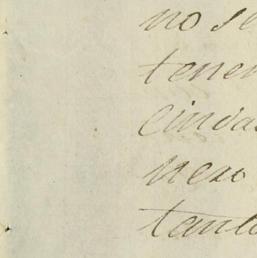 no se
tener
cimas
nero
tanto